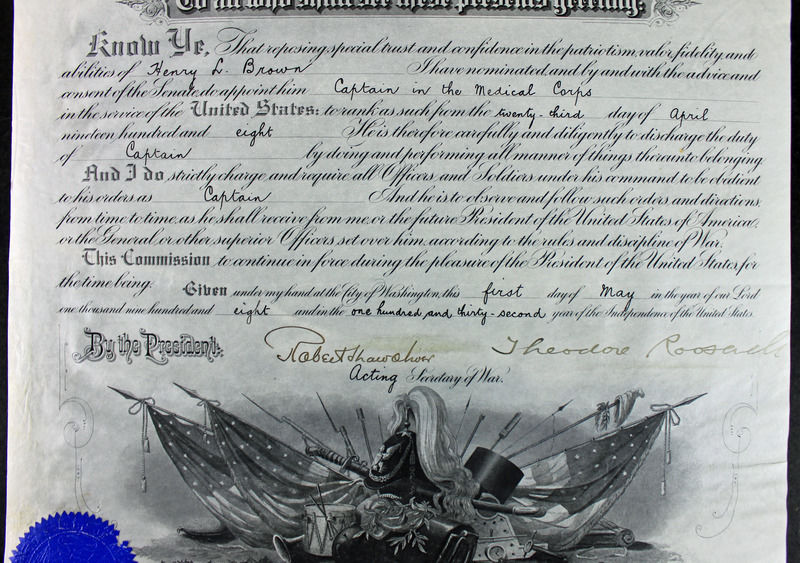 To all who shall see these presents greeting:
Know Ye, That reposing special trust and confidence in the patriotism, valor, fidelity, and
abilities of Henry L. Brown I have nominated, and by and with the advice and
consent of the Senate, do appoint him Captain in the Medical Corps
in the service of the United States: to rank as such from the twenty-third day of April
nineteen hundred and eight He is therefore carefully and diligently to discharge the duty
of Captain by doing and performing all manner of things thereunto belonging.
And I do strictly charge, and require all Officers and Soldiers under his command to be obedient
to his orders as Captain And he is to observe and follow such orders and directions,
from time to time, as he shall receive from me, or the future President of the United States of America,
or the General, or other superior Officers set over him, according to the rules and discipline of War.
This Commission to continue in force during the pleasure of the President of the United States, for
the time being.
Given under my hand at the City of Washington, this first day of May in the year of our Lord
one thousand nine hundred and eight and in the one hundred and thirty-second year of the Independence of the United States.
By the President:
Robert Shaw Oliver Theodore Roosevelt
Acting Secretary of War.